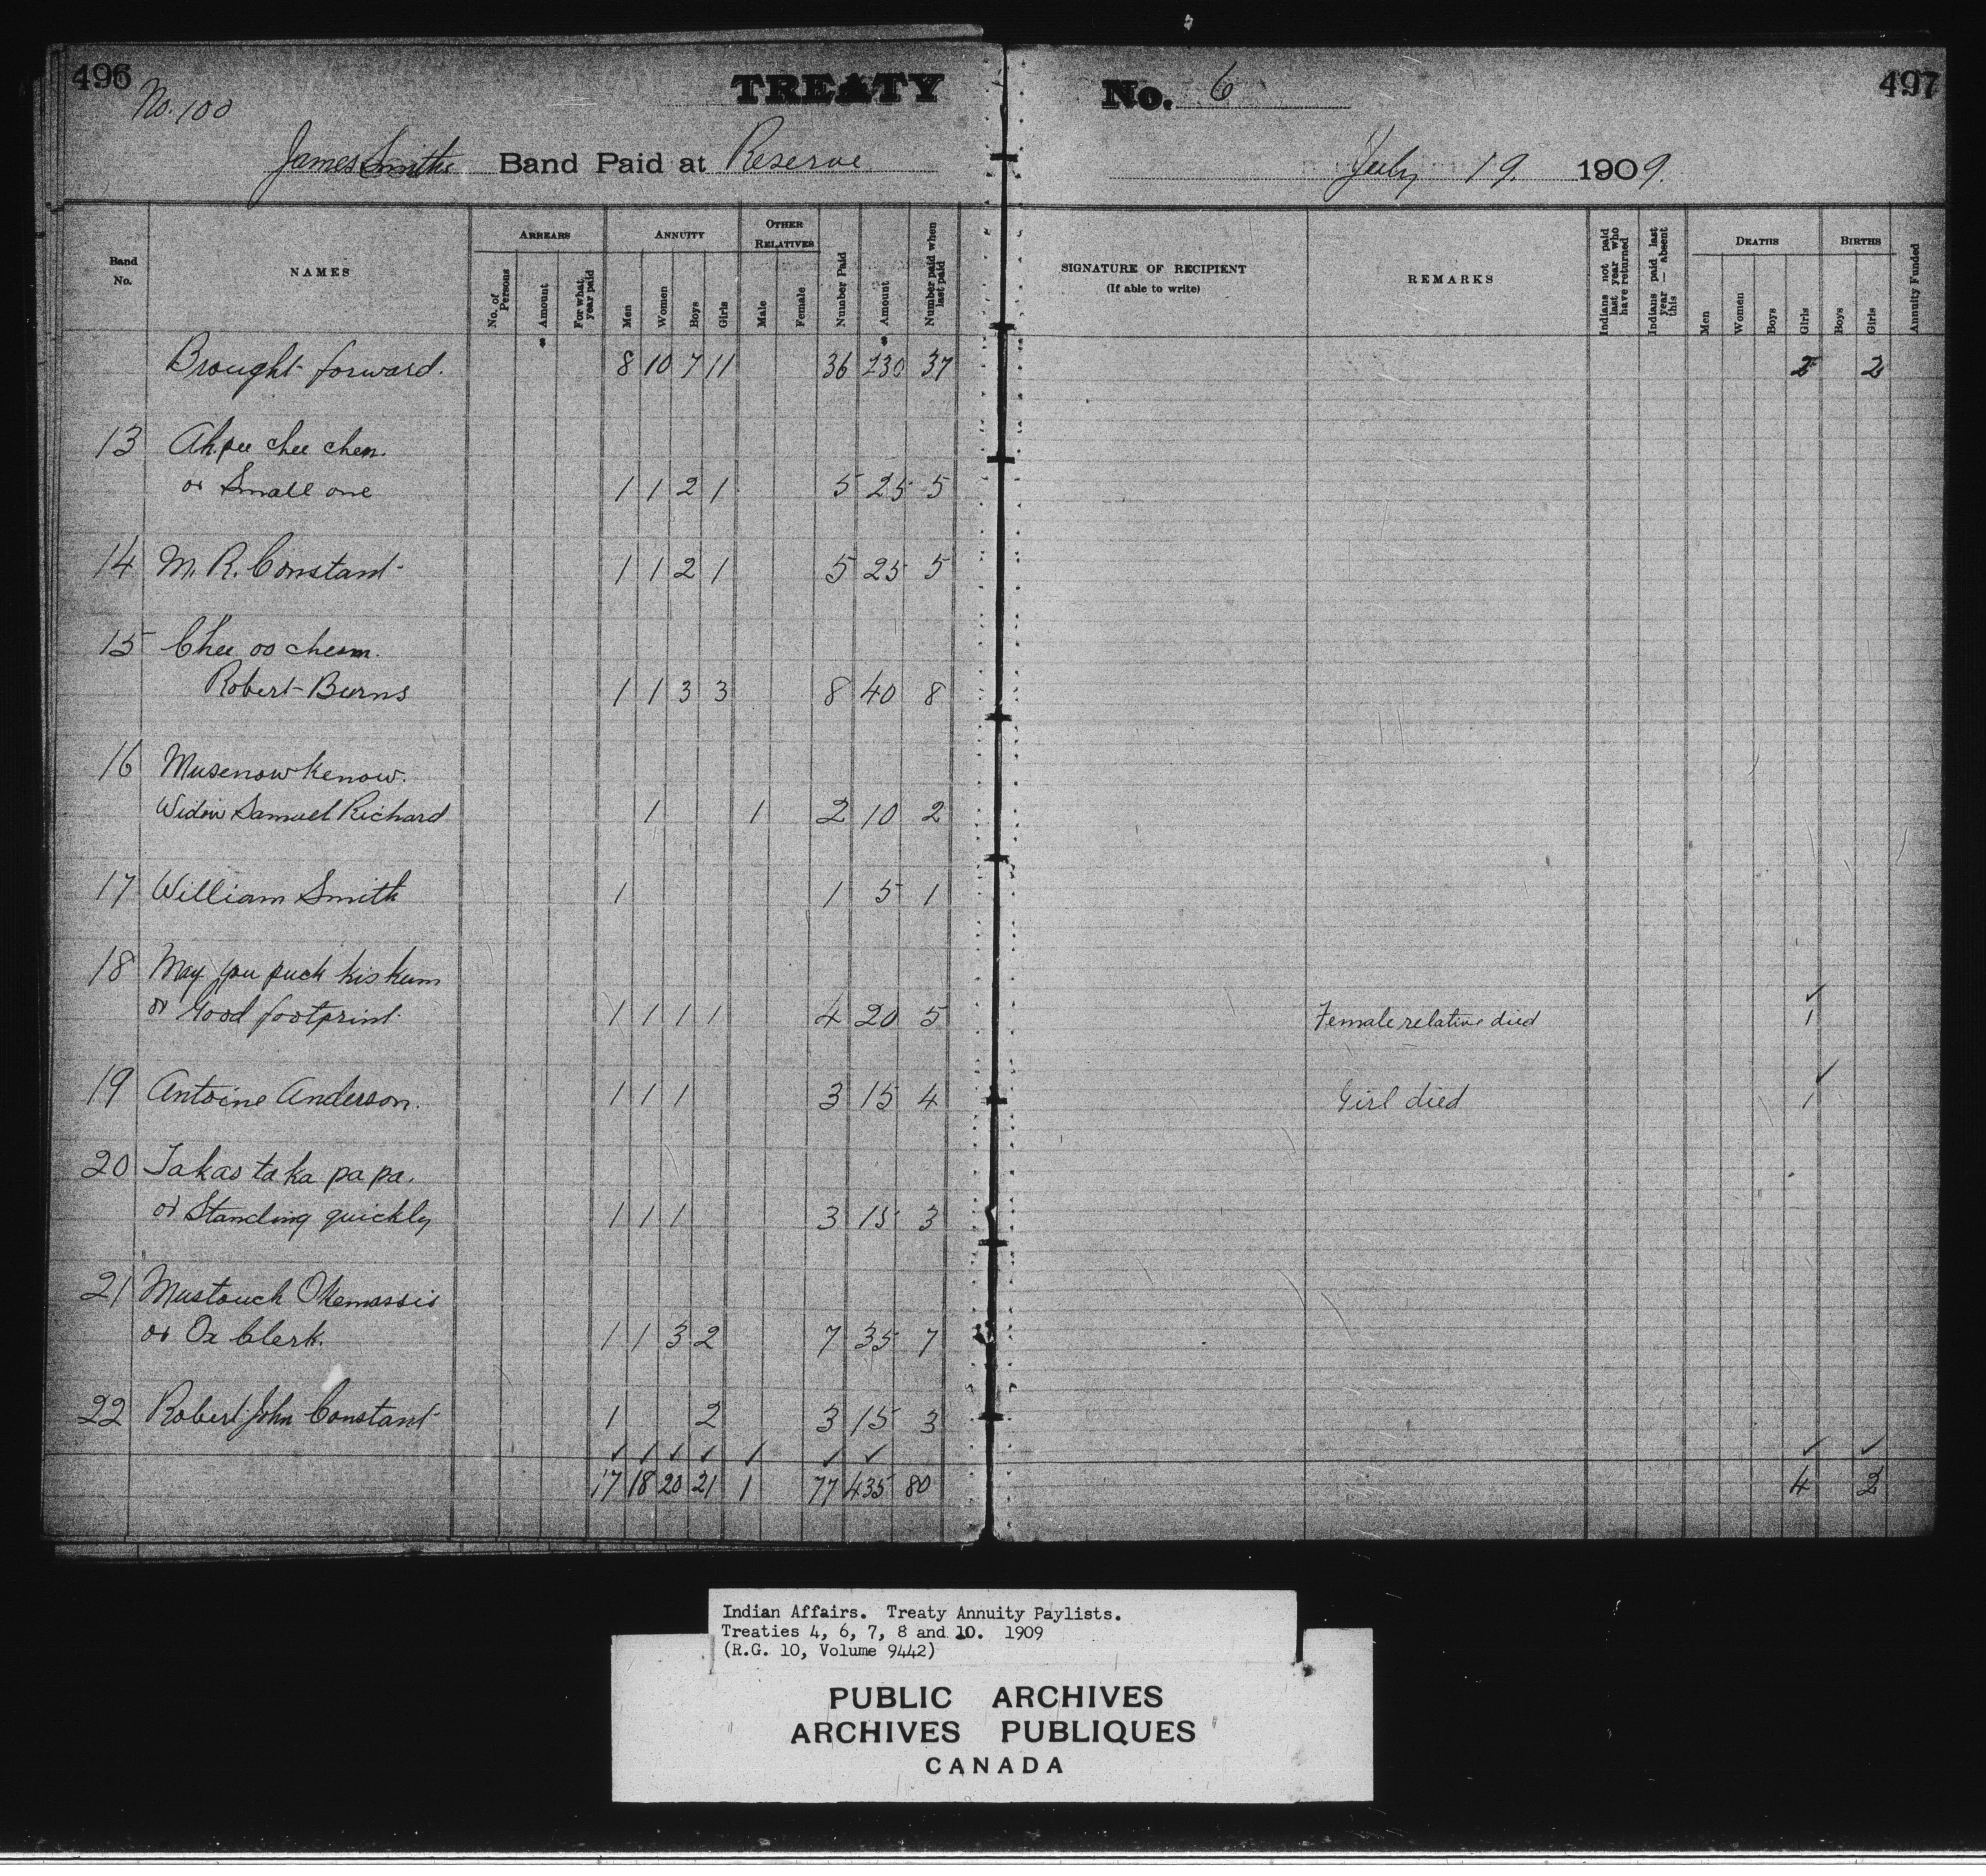 496 TREATY No. 6 497
No. 100
James Smith's Band Paid at Reserve July 19. 1909.
Band No. NAMES ARREARS No. of Persons Amount For what year paid ANNUITY Men Women Boys Girls OTHER RELATIVES Male Female Number Paid Amount Number paid when last paid SIGNATURE OF RECIPIENT (If able to write) REMARKS Indians not paid last year who have returned Indians paid last year — absent this DEATHS Men Women Boys Girls BIRTHS Boys Girls Annuity Funded
Brought forward. 8 10 7 11 36 230 37 2 2
13 Ah pee chee chen.
or Small one 1 1 2 1 5 25 5
14 M. R. Constant 1 1 2 1 5 25 5
15 Chee oo cheem.
Robert Burns 1 1 3 3 8 40 8
16 Musenowkenow.
Widow Samuel Richard 1 1 2 10 2
17 William Smith 1 1 5 1
18 May you puck kiskum ✓
or Good footprint 1 1 1 1 4 20 5 Female relative died 1
19 Antoine Anderson. 1 1 1 3 15 4 Girl died 1 ✓
20 Takas ta ka pa pa.
or Standing quickly 1 1 1 3 15 3
21 Mustouch Okemassis
or Ox Clerk. 1 1 3 2 7 35 7
22 Robert John Constant 1 2 3 15 3
✓ ✓ ✓ ✓ ✓ ✓ ✓ ✓ ✓
17 18 20 21 1 77 435 80 4 2
Indian Affairs. Treaty Annuity Paylists.
Treaties 4, 6, 7, 8 and 10. 1909
(R.G. 10, Volume 9442)
PUBLIC ARCHIVES
ARCHIVES PUBLIQUES
CANADA